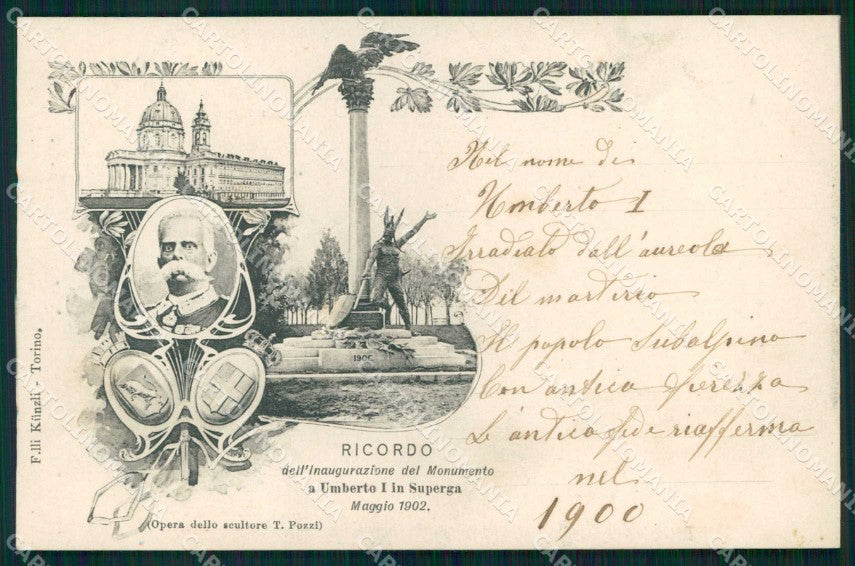 F.lli Künzli - Torino.
1900
RICORDO
dell'Inaugurazione del Monumento
a Umberto I in Superga
Maggio 1902.
(Opera dello scultore T. Pozzi)
Nel nome di
Umberto I
Irradiato dall'aureola
Del martirio
Il popolo subalpino
Con antica fierezza
L'antica fede riafferma
nel
1900
CARTOLINOMANIA